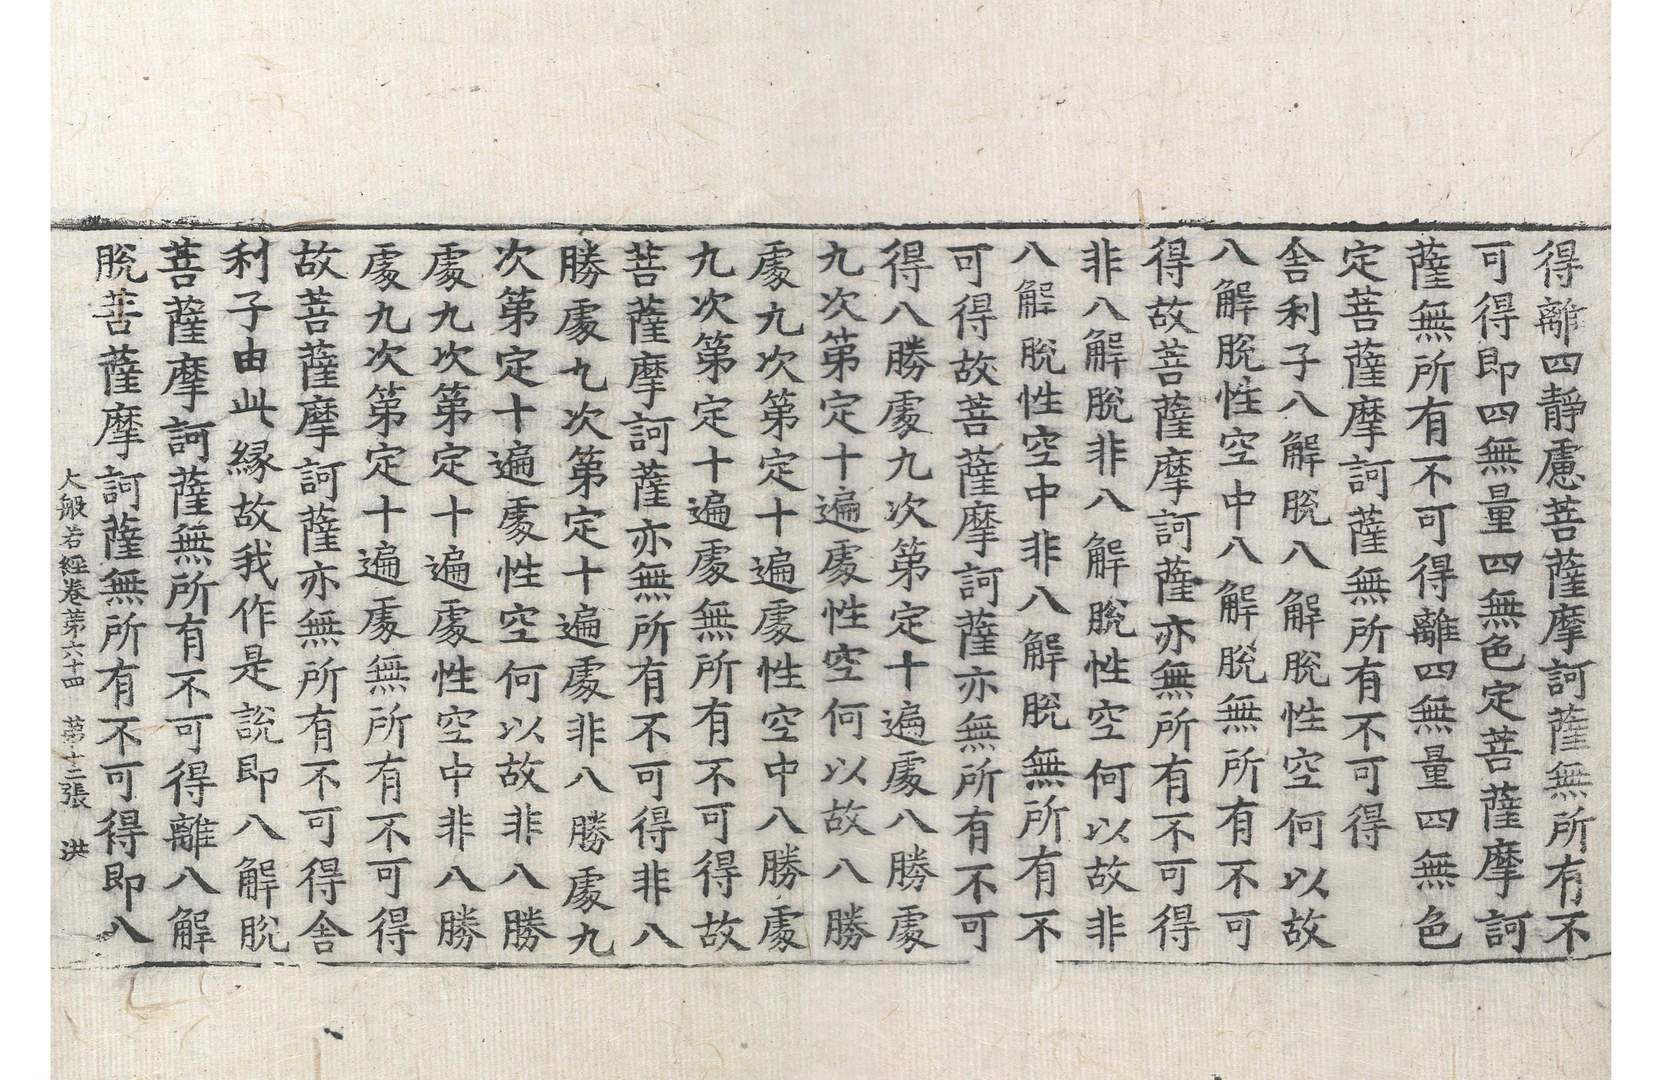 得離四靜慮菩薩摩訶薩無所有不
可得即四無量四無色定菩薩摩訶
薩無所有不可得離四無量四無色
定菩薩摩訶薩無所有不可得
舍利子八解脫八解脫性空何以故
八解脫性空中八解脫無所有不可
得故菩薩摩訶薩亦無所有不可得
非八解脫非八解脫性空何以故非
八解脫性空中非八解脫無所有不
可得故菩薩摩訶薩亦無所有不可
得八勝處九次第定十遍處八勝處
九次第定十遍處性空何以故八勝
處九次第定十遍處性空中八勝處
九次第定十遍處無所有不可得故
菩薩摩訶薩亦無所有不可得非八
勝處九次第定十遍處非八勝處九
次第定十遍處性空何以故非八勝
處九次第定十遍處性空中非八勝
處九次第定十遍處無所有不可得
故菩薩摩訶薩亦無所有不可得舍
利子由此緣故我作是說即八解脫
菩薩摩訶薩無所有不可得離八解
脫菩薩摩訶薩無所有不可得即八
大般若經卷第六十四 第十二張 洪